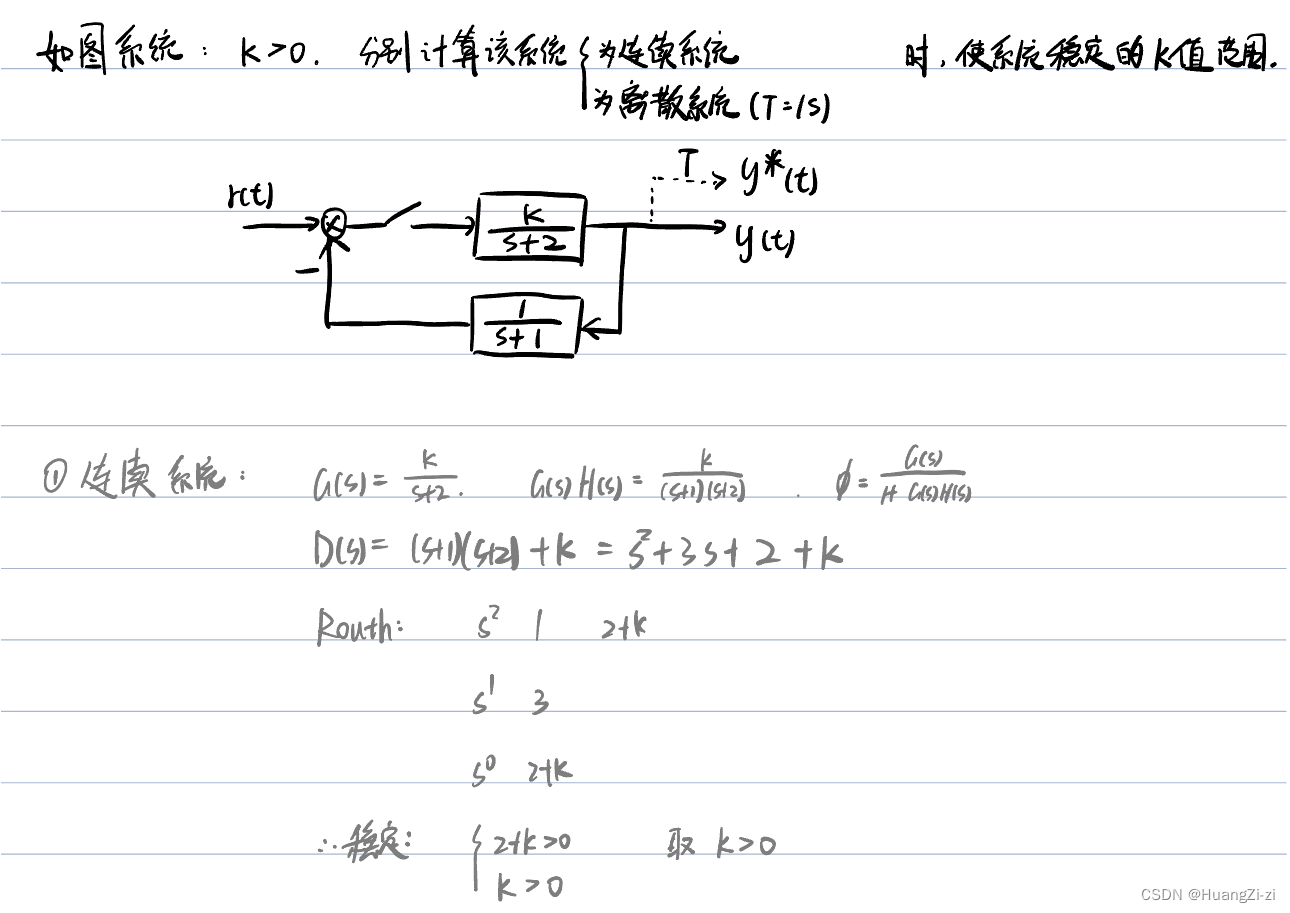 如图系统： K>0. 分别计算该系统 { 为连续系统 时, 使系统稳定的K值范围.
为离散系统 (T=1s)
T y*(t)
r(t)
K/(s+2)
y(t)
−
1/(s+1)
① 连续系统： G(s)= K/(s+2). G(s)H(s)= K/((s+1)(s+2)) . ϕ= G(s)/(1+G(s)H(s))
D(s)= (s+1)(s+2)+K = s²+3s+2+K
Routh: s² 1 2+K
s¹ 3
s⁰ 2+K
∴稳定: { 2+K>0 取 K>0
K>0
CSDN @HuangZi-zi